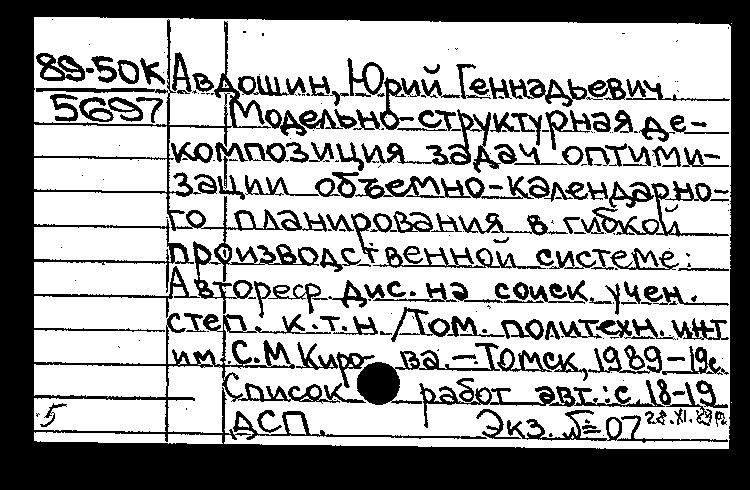 89-50К Авдошин, Юрий Геннадьевич.
5697 Модельно-структурная де-
композиция задач оптими-
зации объемно-календарно-
го планирования в гибкой
производственной системе:
Автореф. дис. на соиск. учен.
степ. к.т.н. /Том. политехн. инт
им. С.М. Киро- ва. — Томск, 1989 — 19с.
Список работ авт.: с. 18-19
5 ДСП. Экз. № 07 28.XI.89